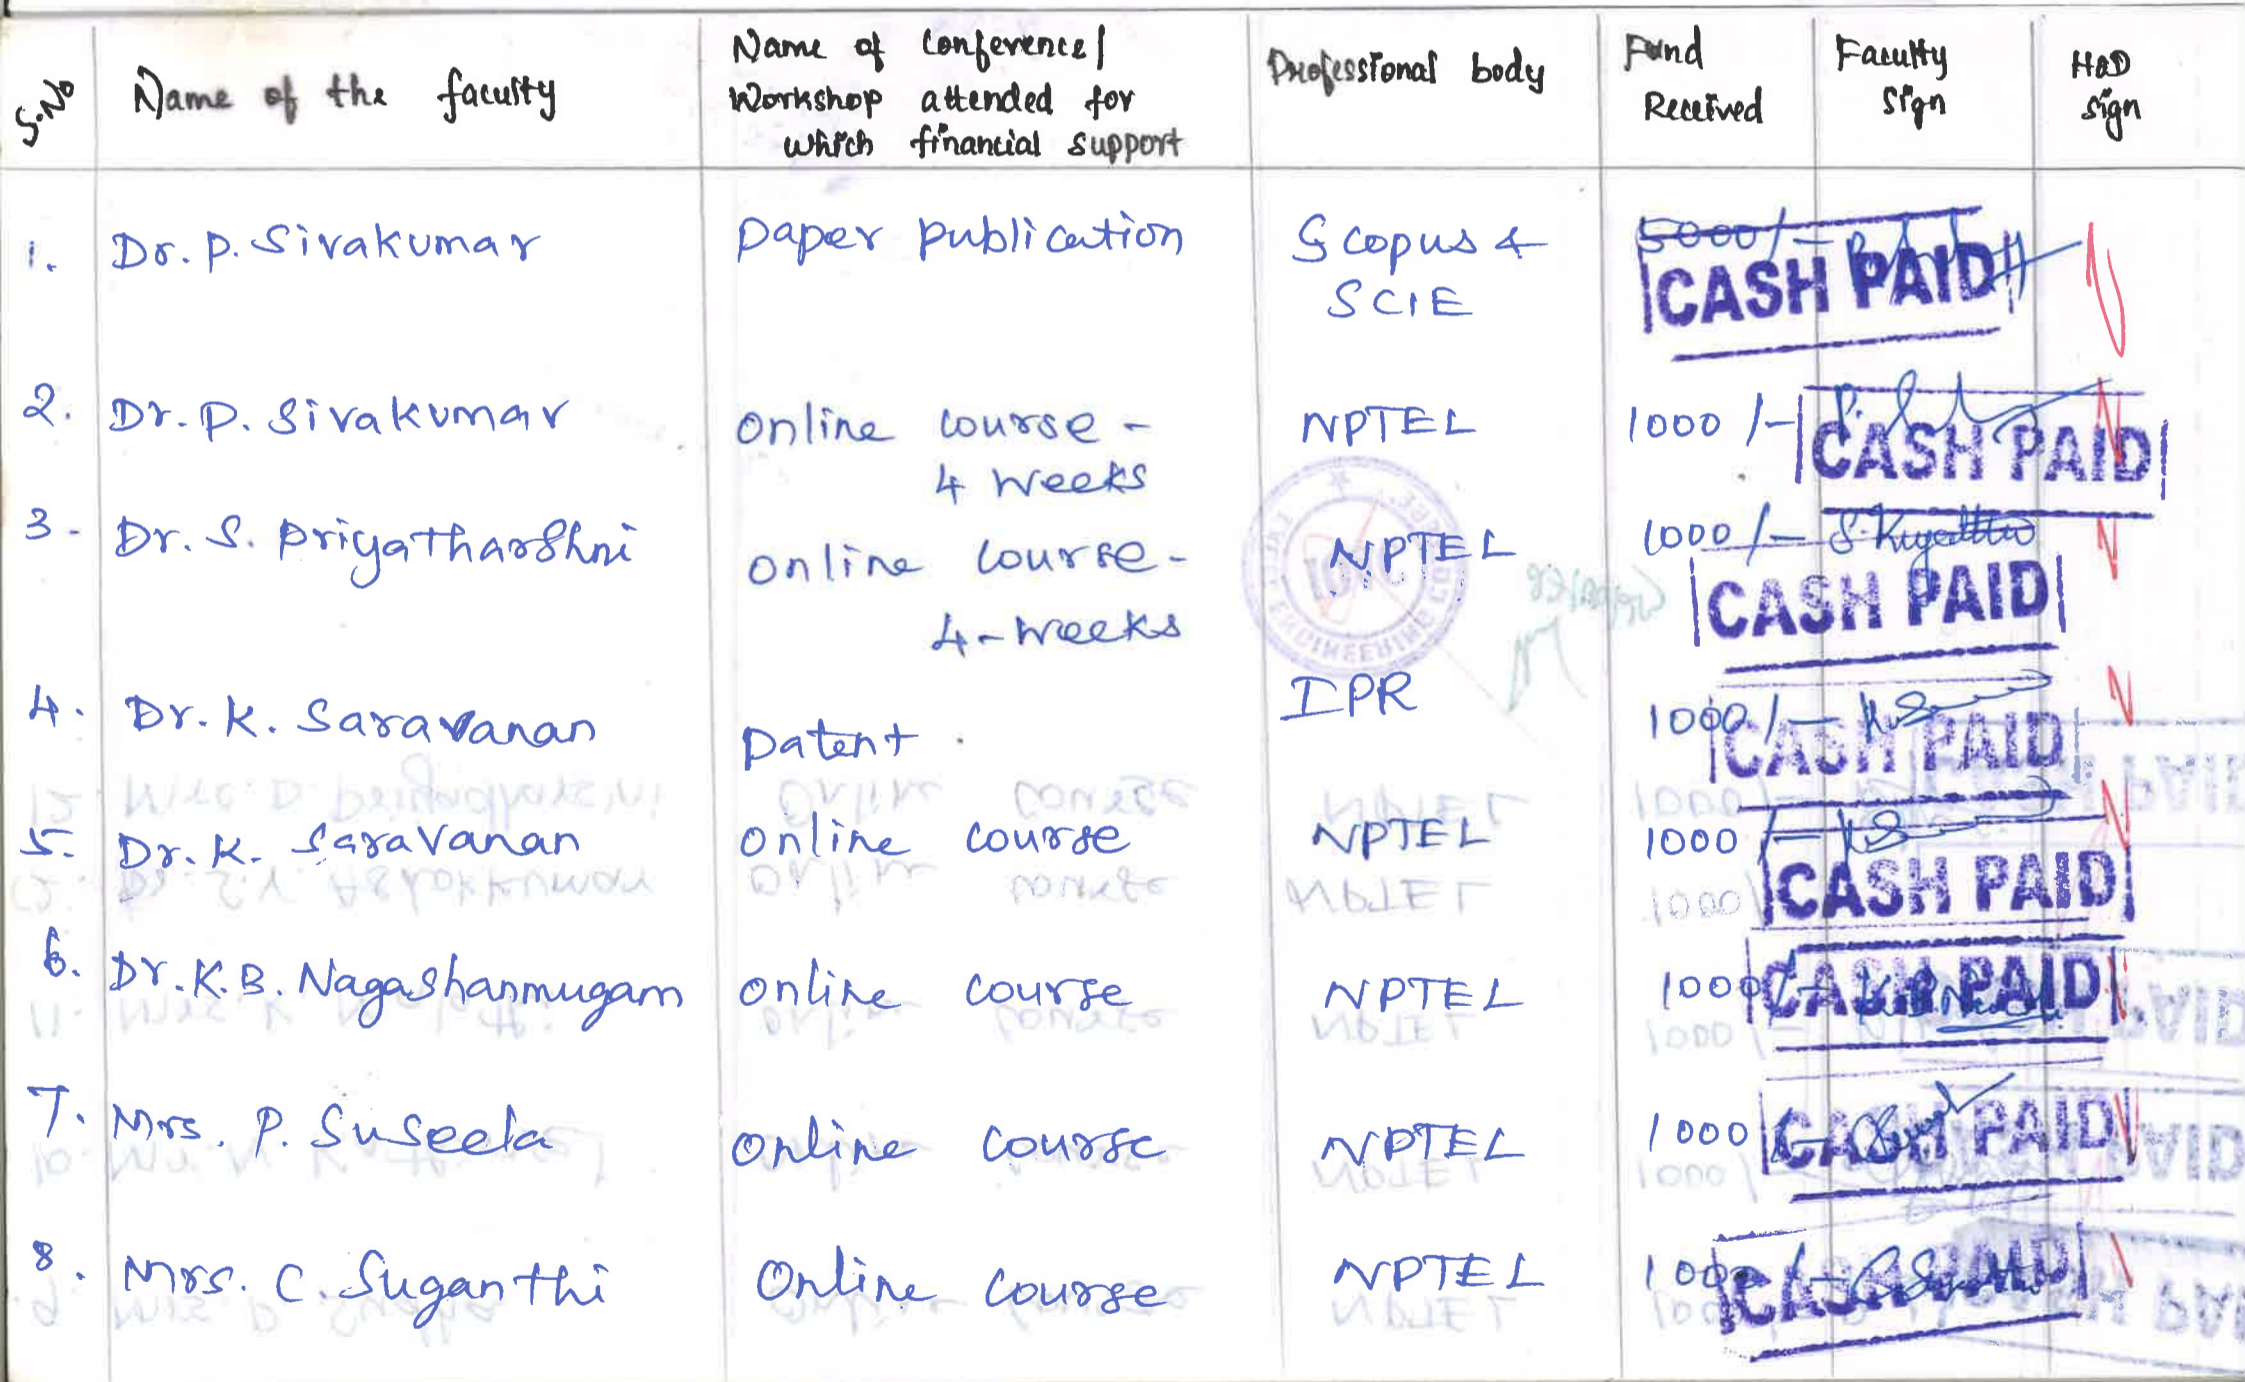 S.No Name of the faculty Name of Conference/ Workshop attended for which financial support Professional body Fund Received Faculty Sign HOD Sign
1. Dr. P. Sivakumar Paper Publication Scopus & 5000/-
SCIE CASH PAID
2. Dr. P. Sivakumar Online Course - NPTEL 1000/-
4 Weeks CASH PAID
3. Dr. S. Priyatharshni Online Course - NPTEL 1000/-
4-Weeks CASH PAID
4. Dr. K. Saravanan Patent. IPR 1000/-
CASH PAID
5. Dr. K. Saravanan Online Course NPTEL 1000/-
CASH PAID
6. Dr. K.B. Nagashanmugam Online Course NPTEL 1000/-
CASH PAID
7. Mrs. P. Suseela Online Course NPTEL 1000/-
CASH PAID
8. Mrs. C. Suganthi Online Course NPTEL 1000/-
CASH PAID